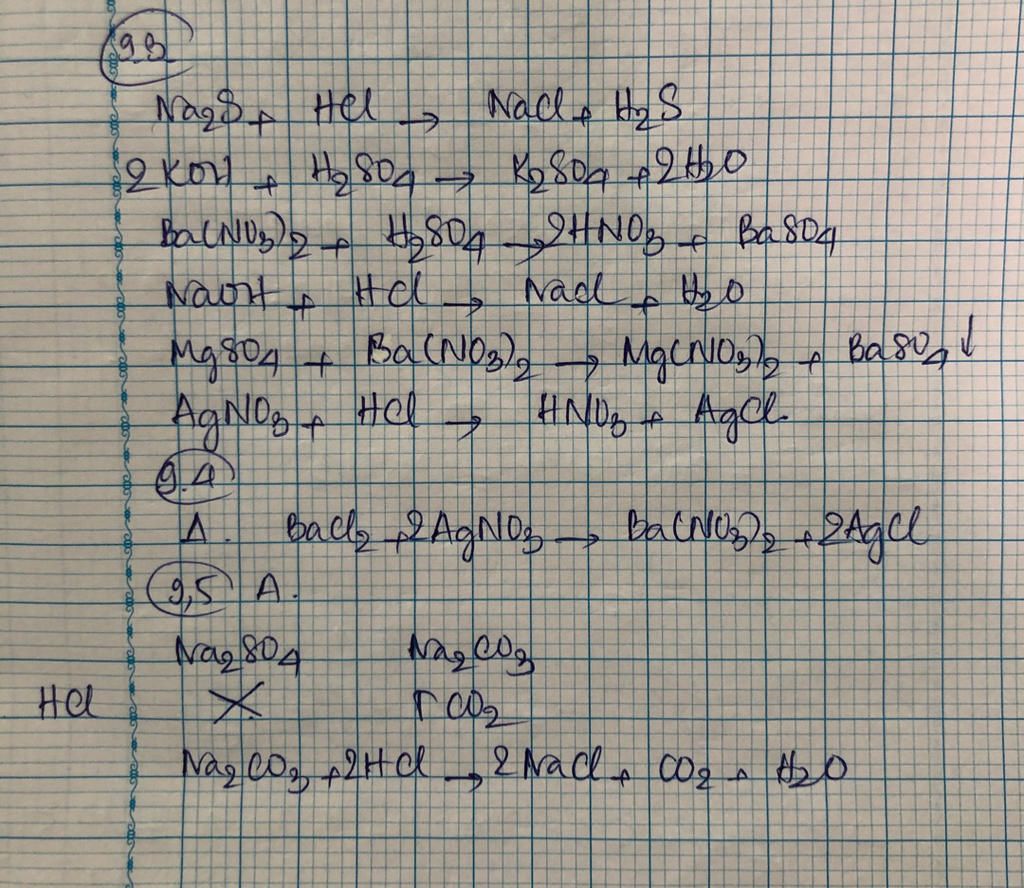 9.3
Na2S + HCl → NaCl + H2S
2KOH + H2SO4 → K2SO4 + 2H2O
Ba(NO3)2 + H2SO4 → 2HNO3 + BaSO4
NaOH + HCl → NaCl + H2O
MgSO4 + Ba(NO3)2 → Mg(NO3)2 + BaSO4↓
AgNO3 + HCl → HNO3 + AgCl
9.4
Δ. BaCl2 + 2AgNO3 → Ba(NO3)2 + 2AgCl
9,5 A.
Na2SO4 Na2CO3
HCl X ↑CO2
Na2CO3 + 2HCl → 2NaCl + CO2 + H2O